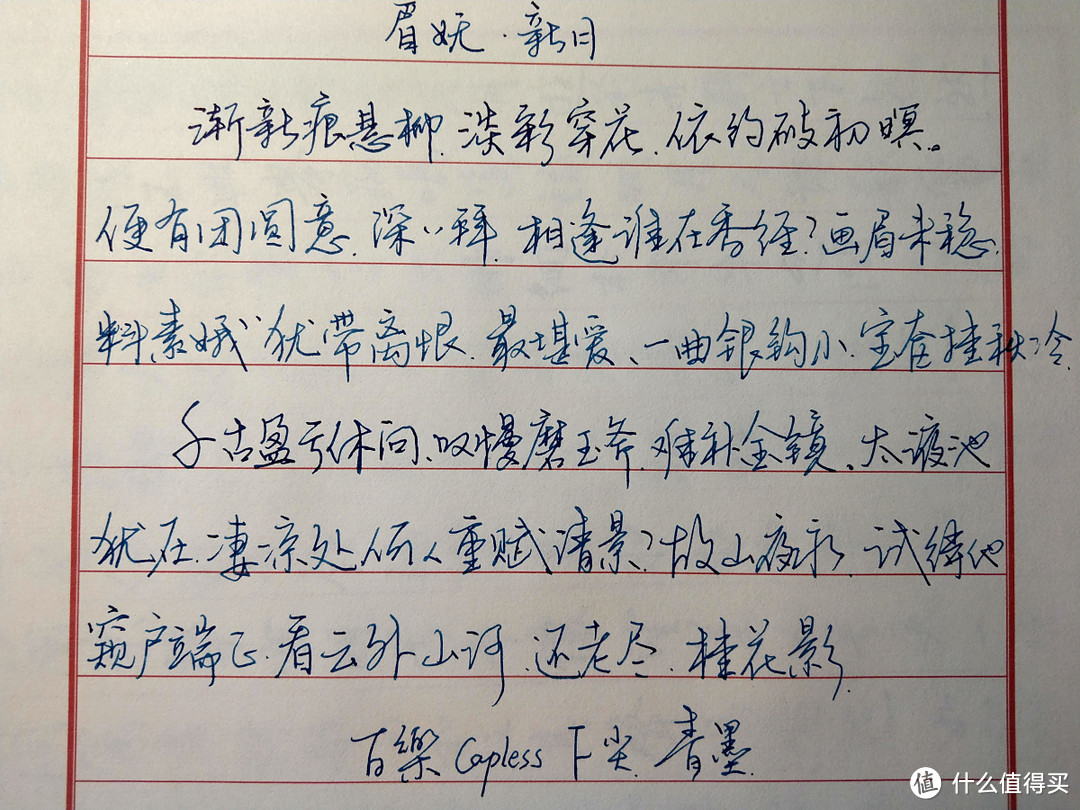 眉妩·新月
渐新痕悬柳,淡彩穿花,依约破初暝。
便有团圆意,深深拜,相逢谁在香径?画眉未稳,
料素娥、犹带离恨。最堪爱、一曲银钩小,宝奁挂秋冷。
千古盈亏休问,叹慢磨玉斧,难补金镜。太液池
犹在,凄凉处何人重赋清景?故山夜永,试待他
窥户端正。看云外山河,还老尽、桂花影。
百樂 Capless F尖 青墨
值 什么值得买